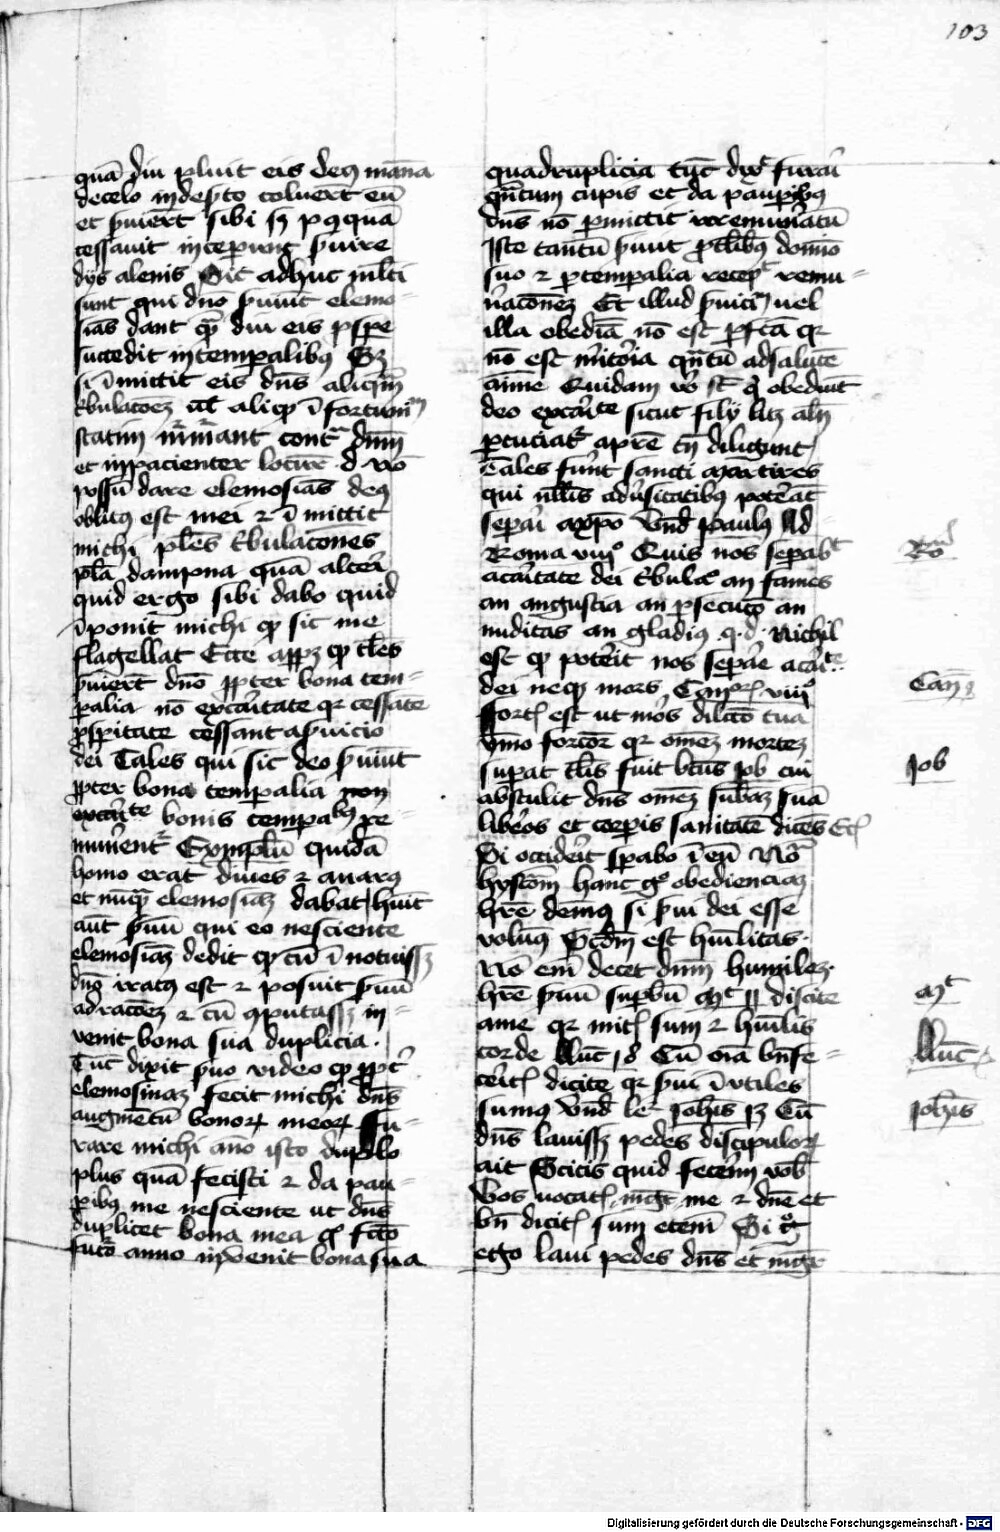 103
quā diu pluit eis deus māna
de celo in deserto coluert eū
et seruiert sibi sed postquā
cessauit inceperunt seruire
dijs alienis Sic adhuc multi
sunt qui dno seruiūt elemo=
sias dant quam diu eis prospe
succedit in temporalibus Sed
si īmittit eis dn̄s aliquam
tribulacoem vel aliqd īfortuniū
statim murmurant contra dnm
et inpacienter locūt̄ d nō
possū dare elemosias deus
oblitus est mei et īmittit
michi plēs tribulacōnes
pla dampna quā alteri
quid ergo sibi dabo quid
īponit michi quod sic me
flagellat Ecce apparet quod tales
seruiert dnō propter bona tem=
poralia nō ex caritate quia cessāte
prosperitate cessant a seruicio
dei Tales qui sic deo seruiūt
propter bona temporalia non
ex caritate bonis temporalibus re=
munerent̄ Exemplū quidā
homo erat diues et auarus
et nūquam elemosiam dabat habuit
aut seruū qui eo nesciente
elemosiam dedit quod cū īnotuisset
dn̄s iratus est et posuit seruū
ad racōem et cū cōputasset in=
venit bona sua duplicia.
Tūc dixit seruo video quod propter
elemosinam fecit michi dn̄s
augmētū bonorum meorum Fu=
rare michi anno isto duplo
plus quā fecisti et da pau=
peribus me nesciente ut dn̄s
duplicet bona mea quo facto
futuro anno invenit bona sua
quadruplicia tūc dixit furari
quantum cupis et da pauperibus
dn̄s nō permittit irremuneratū
Iste tantū seruiuit precibus domino
suo et pro temporalia recepit remu=
neracōnem Et illud seruiciū uel
illa obediā nō est perfecta quia
nō est meritoria quantū ad salutē
anime Quidam vero sunt qui obediūt
deo ex caritate sicut filij licet aliquando
percuciantur a patre tamen diligunt
Tales fuerūt sancti martires
qui nullis aduersitatibus poterāt
separi a xpo Vnd Paulus Ad
Roma viii° Quis nos separabit
a caritate dei tribulac̄ an fames
an angustia an persecutō an
nuditas an gladius q.d. Nichil
est quod poterit nos separe a caritate
dei neque mors Canticorum viii°
Fortis est ut mors dilectō tua
ymo forcior quia omnem mortem
superat talis fuit beatus Job cui
abstulit dn̄s omnem substanciam suā
liberos et corporis sanitatē dicēs Eciā
Si occiderit sperabo ī eū Nōᵃ
hystoriam hanc ergo obedienciam
habere debemus si serui dei esse
volumus Secundum est humilitas.
Nō enim decet dnm humilem
habere seruū superbū Mt xi discite
a me quia mitis sum et humilis
corde Luc 18 Cū omnia bn̄fe=
ceritis dicite quia serui īvtiles
sumus Vnd legitur Johēs 13 Cū
dn̄s lauisset pedes discipulorum
ait Scitis quid fecerim vobis
Vos vocatis magister me et dnē et
bn̄ dicitis sum etenim Si ergo
ego laui pedes dn̄s et magister
Ro
Can 8
Job
Mt
Luc
Johēs
Digitalisierung gefördert durch die Deutsche Forschungsgemeinschaft - DFG